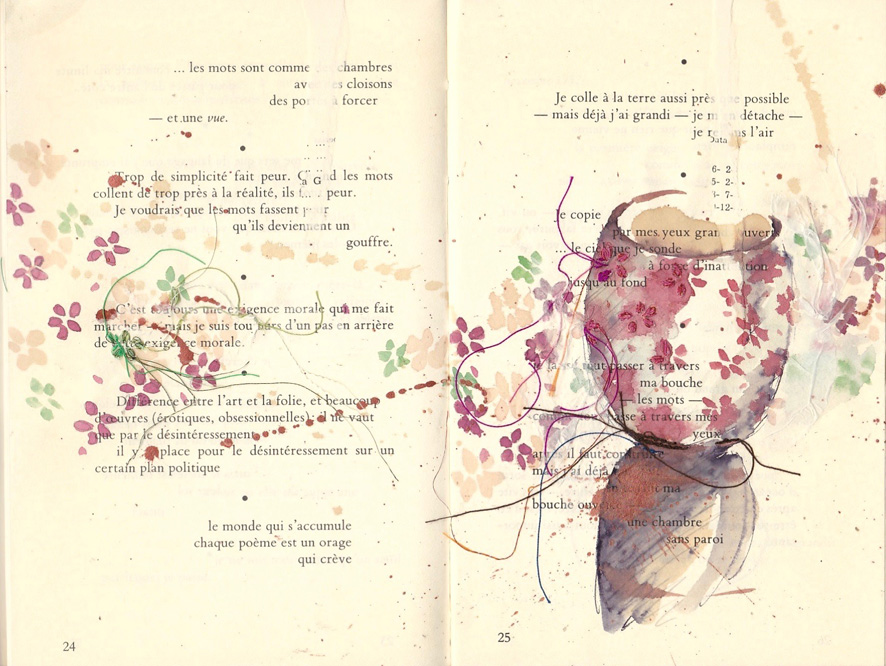 ... les mots sont comme chambres
cloisons
des à forcer
— et une vue.
Trop de simplicité fait peur. les mots
collent de trop près à la réalité, ils peur.
Je voudrais que les mots fassent
qu'ils deviennent un
gouffre.
C'est toujours une exigence morale qui me fait
marcher — mais je suis toujours d'un pas en arrière
de exigence morale.
Différence entre l'art et la folie, et beaucoup
d'œuvres (érotiques, obsessionnelles) : il ne vaut
que par le désintéressement
il y place pour le désintéressement sur un
certain plan politique
le monde qui s'accumule
chaque poème est un orage
qui crève
24
Je colle à la terre aussi près possible
— mais déjà j'ai grandi — je détache —
je l'air
Data
6- 2
5- 2-
7-
-12-
Je copie
par mes yeux
... le ciel que je sonde
à force
jusqu'au fond
tout passer à travers
ma bouche
les mots —
passe à travers mes
yeux
il faut
mais j'ai déjà
ma
bouche
une chambre
sans paroi
25